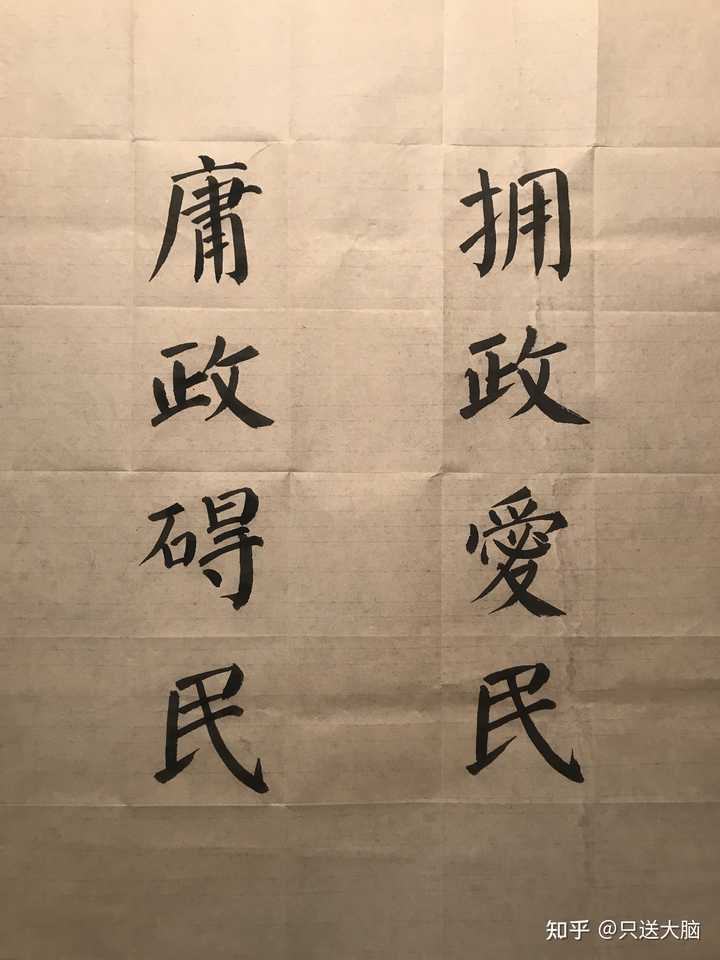 拥政愛民
庸政碍民
知乎 @只送大脑